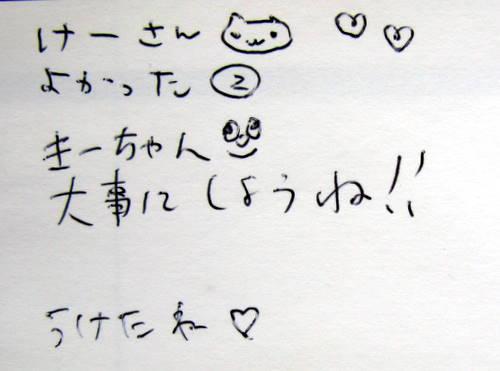 けーさん ♡ ♡
よかった②
きーちゃん
大事にしようね!!
うけたねー♡